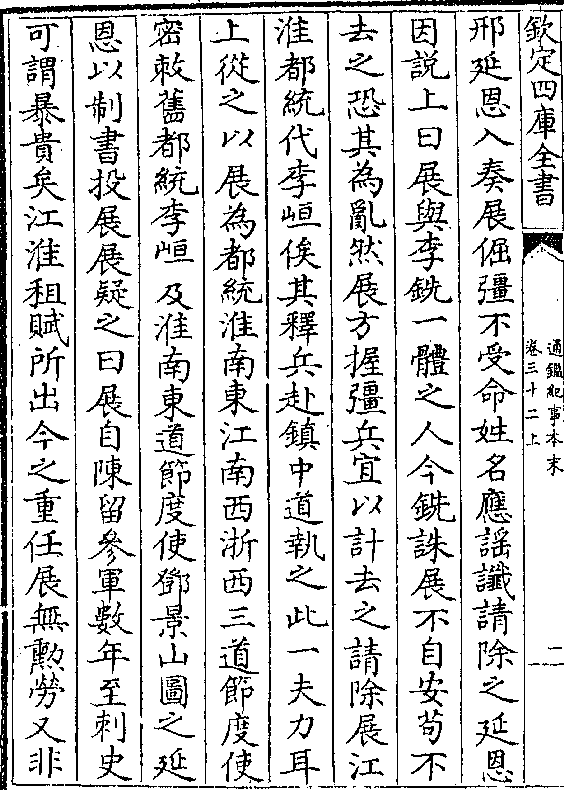 欽定四庫全書
通鑑紀事本末
卷三十二上
二
邢延恩入奏展倔彊不受命姓名應謡讖請除之延恩
因說上曰展與李銑一體之人今銑誅展不自安茍不
去之恐其為亂然展方握彊兵宜以計去之請除展江
淮都統代李峘俟其釋兵赴鎮中道執之此一夫力耳
上從之以展為都統淮南東江南西浙西三道節度使
密敕舊都統李峘及淮南東道節度使鄧景山圖之延
恩以制書投展展疑之曰展自陳留參軍數年至刺史
可謂暴貴矣江淮租賦所出今之重任展無勲勞又非